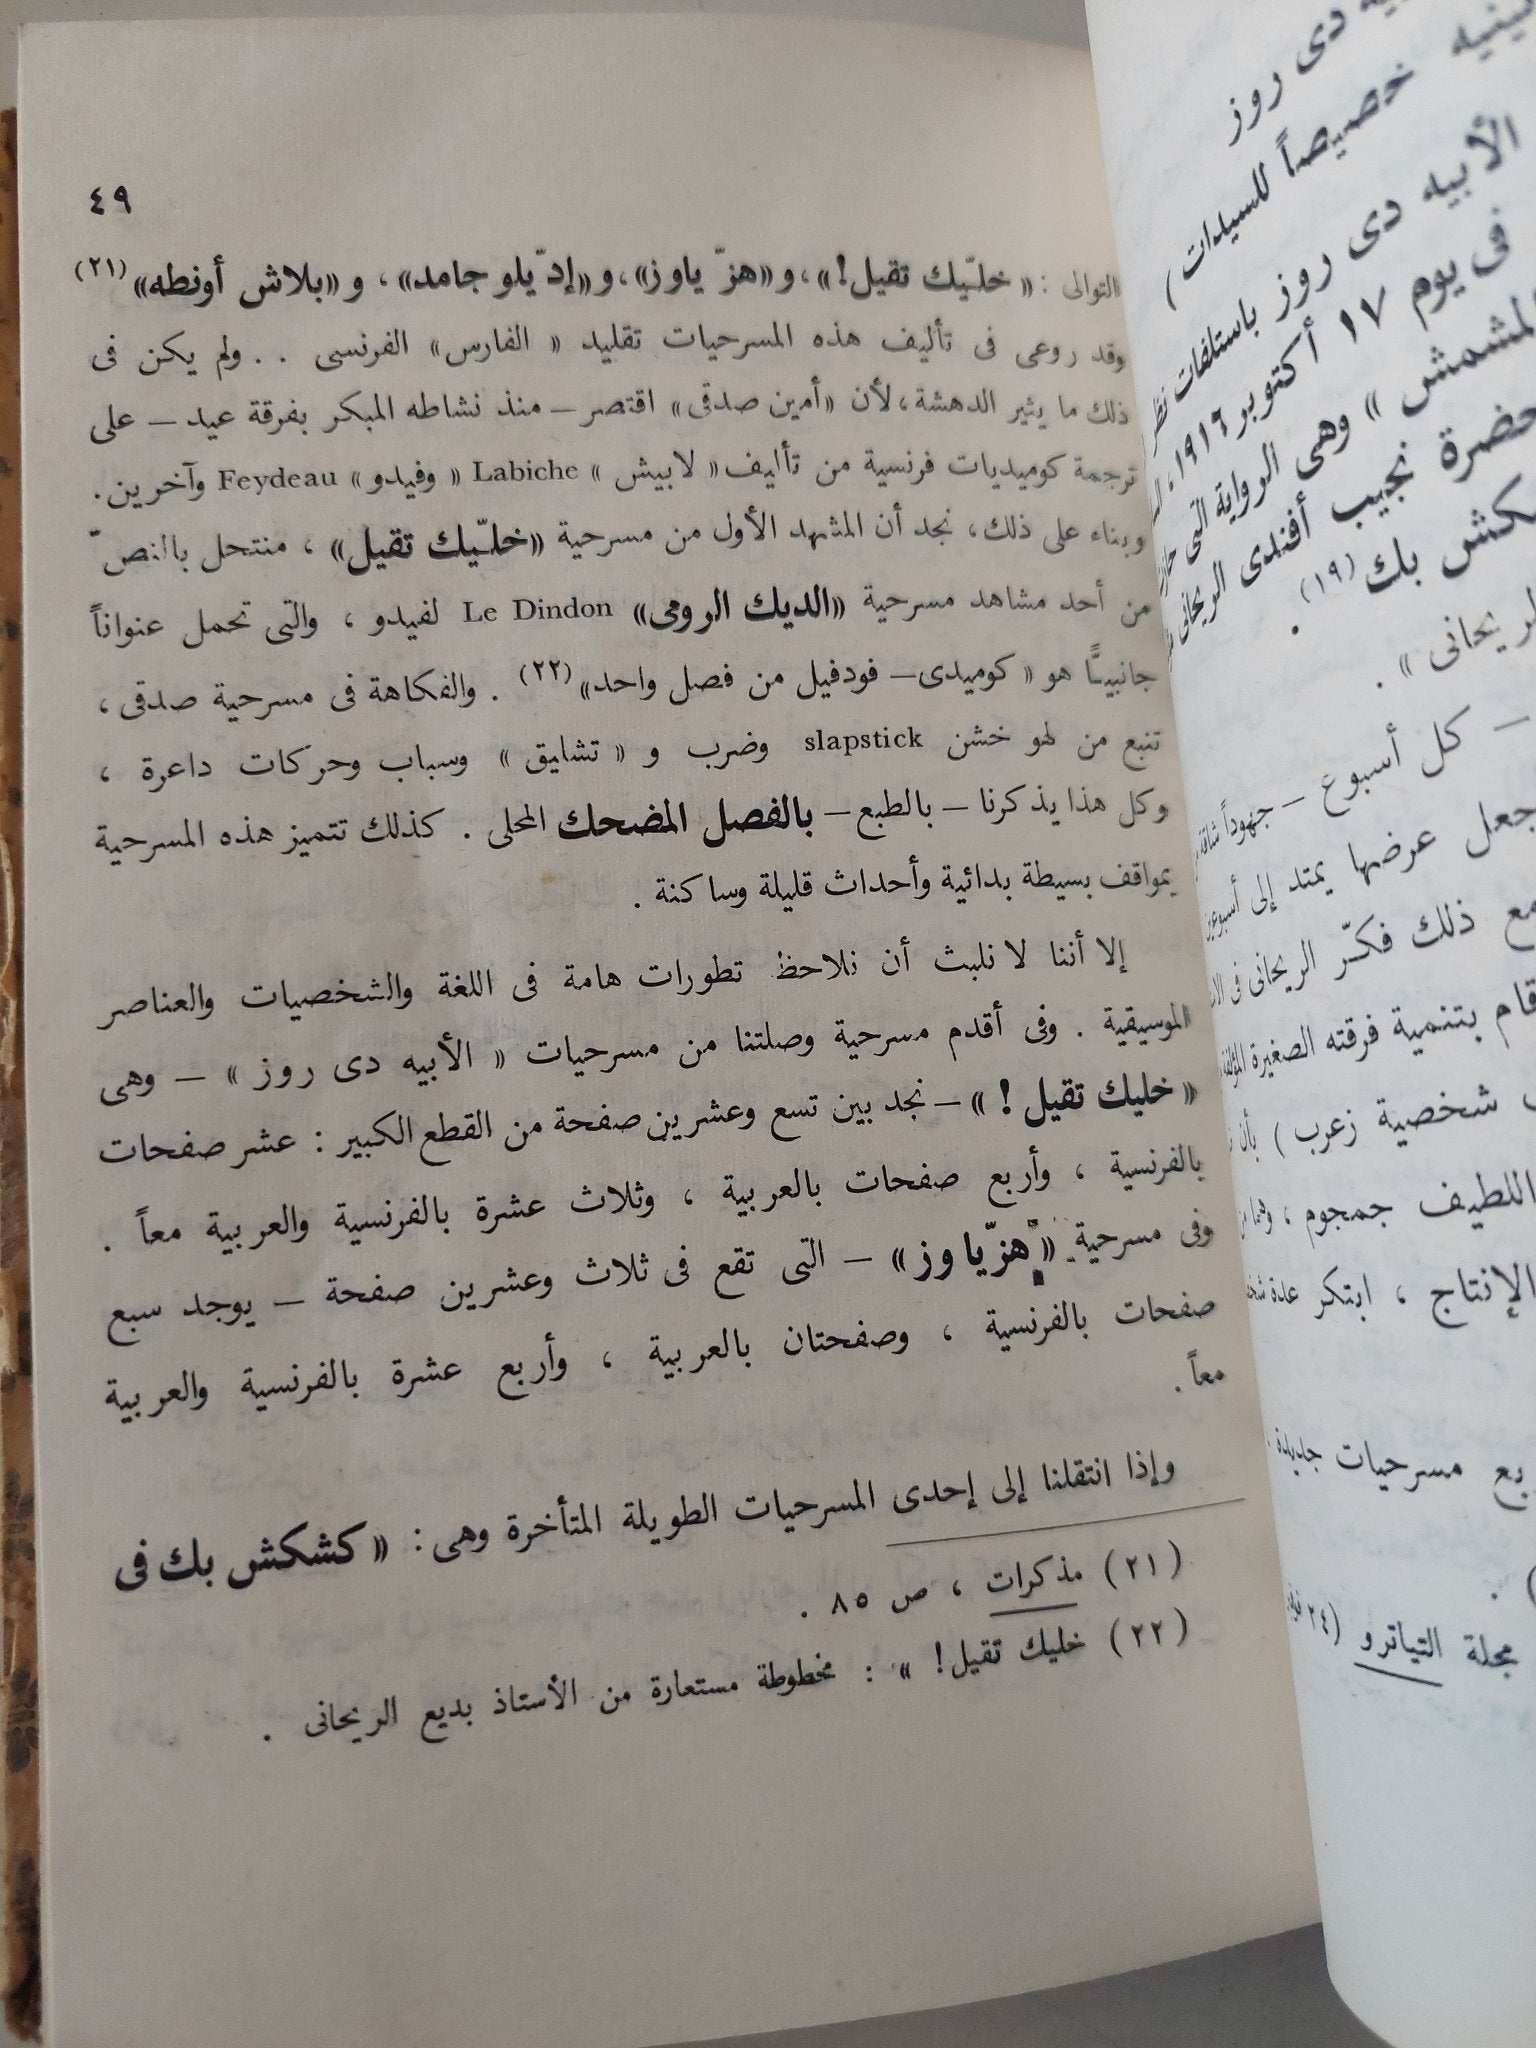 ٤٩
التوالى : « خلـّيك تقيل! » ، و «هزّ ياوز» ، و «إدّيلو جامد» ، و «بلاش أونطه» (٢١)
وقد روعى فى تأليف هذه المسرحيات تقليد « الفارس » الفرنسى . . ولم يكن فى
ذلك ما يثير الدهشة ، لأن «أمين صدقى» اقتصر – منذ نشاطه المبكر بفرقة عيد – على
ترجمة كوميديات فرنسية من تأليف « لابيش » Labiche « وفيدو » Feydeau وآخرين .
وبناء على ذلك ، نجد أن المشهد الأول من مسرحية «خلـّيك تقيل» ، منتحل بالنصّ
من أحد مشاهد مسرحية «الديك الرومى» Le Dindon لفيدو ، والتى تحمل عنواناً
جانبيـًّا هو « كوميدى – فودفيل من فصل واحد» (٢٢) . والفكاهة فى مسرحية صدقى ،
تنبع من لهو خشن slapstick وضرب و « تشليق » وسباب وحركات داعرة ،
وكل هذا يذكرنا – بالطبع – بالفصل المضحك المحلى . كذلك تتميز هذه المسرحية
بمواقف بسيطة بدائية وأحداث قليلة وساكنة .
إلا أننا لا نلبث أن نلاحظ تطورات هامة فى اللغة والشخصيات والعناصر
الموسيقية . وفى أقدم مسرحية وصلتنا من مسرحيات « الأبيه دى روز » – وهى
« خليك تقيل ! » – نجد بين تسع وعشرين صفحة من القطع الكبير : عشر صفحات
بالفرنسية ، وأربع صفحات بالعربية ، وثلاث عشرة بالفرنسية والعربية معاً .
وفى مسرحية « هزّ ياوز » – التى تقع فى ثلاث وعشرين صفحة – يوجد سبع
صفحات بالفرنسية ، وصفحتان بالعربية ، وأربع عشرة بالفرنسية والعربية
معاً .
وإذا انتقلنا إلى إحدى المسرحيات الطويلة المتأخرة وهى : « كشكش بك فى
(٢١) مذكرات ، ص ٨٥ .
(٢٢) خليك تقيل! » : مخطوطة مستعارة من الأستاذ بديع الريحانى .
دى روز
خصيصاً للسيدات )
الأبيه دى روز باستلفات
فى يوم ١٧ أكتوبر ١٩١٦ ،
المشمش » وهى الرواية التى
حضرة نجيب أفندى الريحانى
كشكش بك (١٩) .
الريحانى » .
– كل أسبوع – جهوداً شاقة
جعل عرضها يمتد إلى أسبوعين
مع ذلك فكّر الريحانى فى
قام بتنمية فرقته الصغيرة المؤلفة
شخصية زعرب ) بأن
اللطيف جمجوم ، وهما من
الإنتاج ، ابتكر عدة
مسرحيات جديدة ،
مجلة التياترو (٢٤